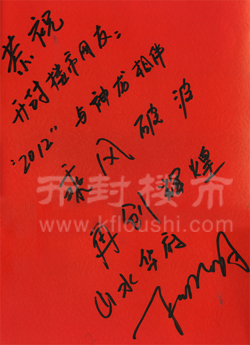 恭祝
开封楼市网友：
“2012”与神龙相伴
乘风破浪
再创辉煌
山水华府
开封楼市
www.kfloushi.com